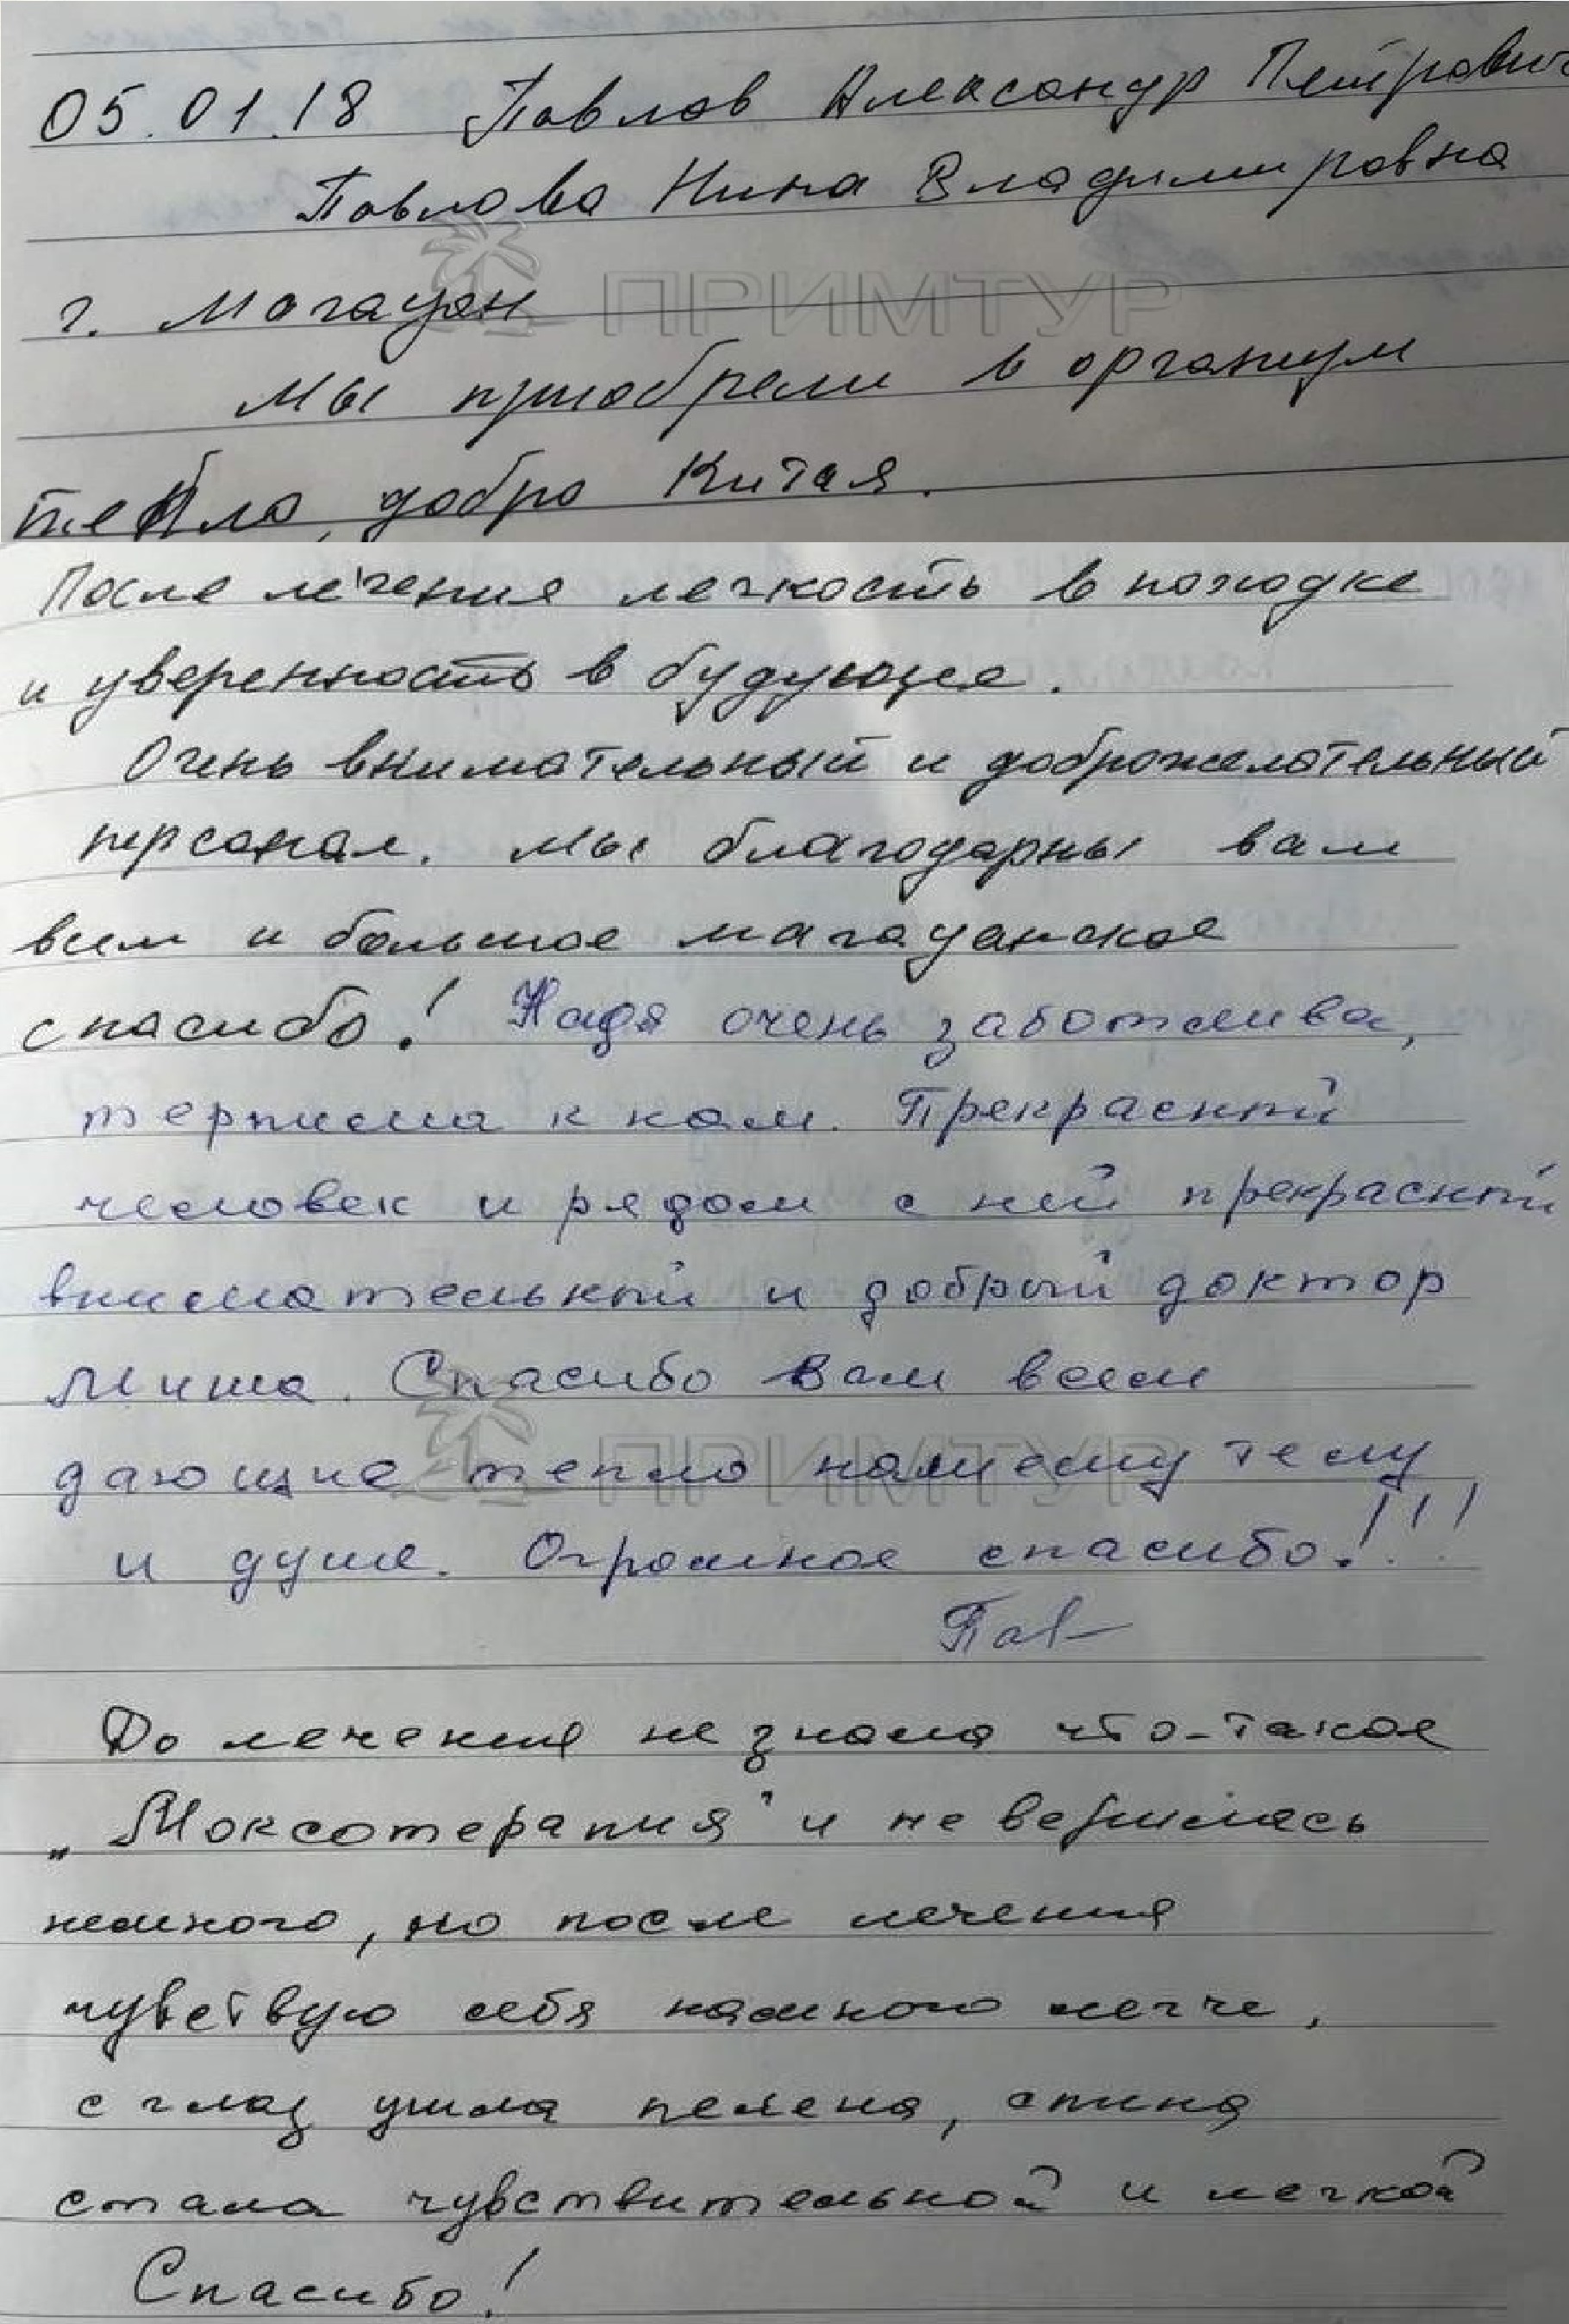 05.01.18 Павлов Александр Петрович
Павлова Нина Владимировна
г. Магадан
ПРИМТУР
Мы приобрели в организм
тепло, добро Китая.
После лечения легкость в походке
и уверенность в будующее.
Очень внимательный и доброжелательный
персонал. Мы благодарны вам
всем и большое магаданское
спасибо! Надя очень заботлива,
терпима к нам. Прекрасный
человек и рядом с ней прекрасный
внимательный и добрый доктор
Миша. Спасибо Вам всем
дающие тепло нашему телу
ПРИМТУР
и душе. Огромное спасибо!!!
Пав
До лечения не знала что-такое
„Моксотерапия" и не верилось
немного, но после лечения
чувствую себя намного легче,
с глаз ушла пелена, спина
стала чувствительной и легкой
Спасибо!